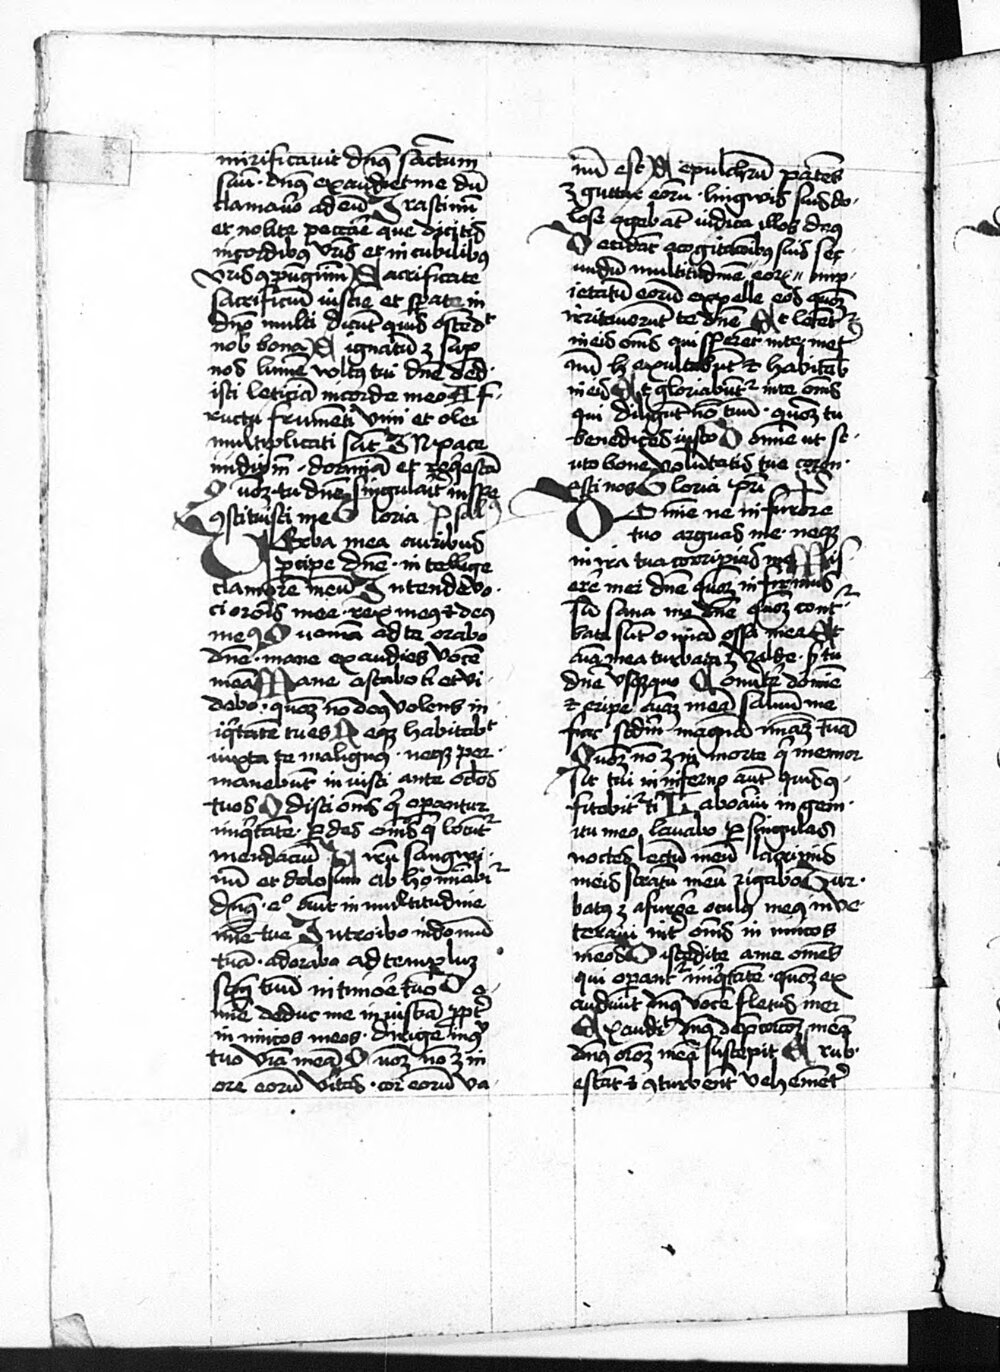 mirificavit dn̄s sanctum
suū · dn̄s exaudiet me dū
clamavo ad eū Irascimī
et nolite peccare que dicitis
in cordibus vr̄is et in cubilibus
vr̄is ɔpūgimī Sacrificate
sacrificiū iusticie et sperate in
dn̄o multi dicūt quis ostendet
nob̄ bona Signatū ÷ sup
nos lumē vultus tui dn̄e ded·
isti leticiā in corde meo A f·
ructu frumenti vini et olei
multiplicati sūt IN pace
in idipm̄ · dormiā et reqescā
Quōz tu dn̄e singulariter in spe
ɔstituisti me Gloria psalmus
Verba mea auribus
ꝑcipe dn̄e · intellige
clamorē meū Intende vo·
ci oronis mee · rex meus et deus
meus Quoniā ad te orabo
dn̄e · mane exaudies vocē
meā Mane astabo ti et vi·
debo · quōz nō deus volens in·
iqitatē tu es Neqz habitabit
iuxta te malignus · neqz per·
manebūt iniusti ante oclos
tuos Odisti om̄s q̄ operantur
iniqitatē · ꝑdes om̄s q̄ locūtur
mendaciū Virū sangwi·
nū et dolosum abhominabitur
dn̄s · Ego aūt in multitudine
mīe tue Introibo in domū
tuā · adorabo ad templuz
scm̄ tuū in timore tuo Do·
mīe deduc me in iusticia tua propter
inimicos meos · dirige in ɔspectu
tuo viā meā Quōz nō ÷ in
ore eorū vitas · cor eorū va·
nū est Sepulchrū patens
÷ guttur eorū · lingwis suis do·
lose agebāt iudica illos deus
Decidāt a cogitatōibus suis sec·
undū multitudinē eorū imp·
ietatū eorū expelle eos quōz
irritaverūt te dn̄e Et letentur
om̄s qui sperant in te · in et·
nū exultabūt et habitabis
in eis Et gloriabūtur in te om̄s
qui diligūt nomē tuū · quōz tu
benedices iusto Domīe ut sc·
uto bone volūtatis tue coron·
asti nos Gloria pr̄i
Domine ne in furore
tuo arguas me · neqz
in ira tua corripias me Mis·
erere mei dn̄e quōz infirmus
sū sana me dn̄e quōz contur·
bata sūt omnia ossa mea Et
aīa mea turbata ÷ valde · s; tu
dn̄e usqzquo Convertere domīe
et eripe aīaz meā salvū me
fac scdm̄ mīaz tuā
Quōz nō ÷ in morte q̄ memor
sit tui in inferno aūt quis ɔ·
fitebitur ti Laboravi in gem·
itu meo lavabo ꝑ singulas
noctes lectū meū lacrimis
meis stratū meū rigabo Tur·
batus ÷ a furore oculus meus inve·
teravi inter om̄s inimicos
meos Discedite a me om̄es
qui operantur iniqitatē · quōz ex
audivit dn̄s vocē fletus mei
Exaudivit dn̄s deprecatōz meā
dn̄s orōz meā suscepit Erub·
escāt et ɔturbentur vehementer